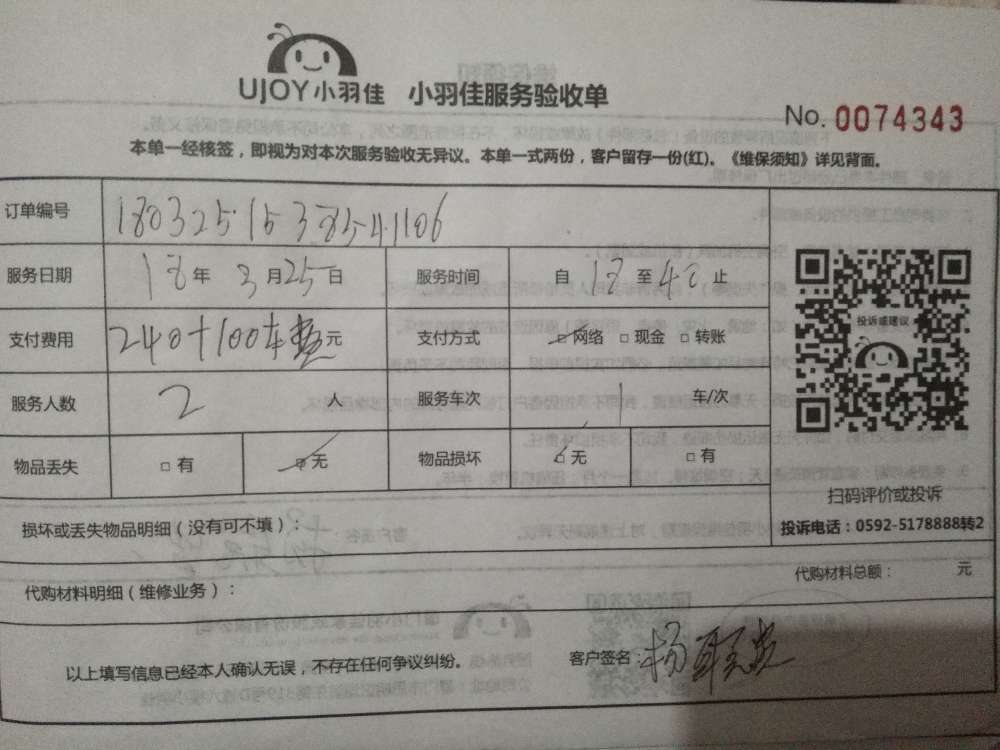 UJOY小羽佳 小羽佳服务验收单
No. 0074343
本单一经核签，即视为对本次服务验收无异议。本单一式两份，客户留存一份(红)。《维保须知》详见背面。
订单编号
服务日期 18 年 3 月 25 日 服务时间 自 18 至 止
支付费用 240+100车费元 支付方式 □网络 □现金 □转账
服务人数 2 人 服务车次 1 车/次
物品丢失 □有 □无 物品损坏 □无 □有
投诉或建议
扫码评价或投诉
投诉电话：0592-5178888转2
损坏或丢失物品明细（没有可不填）：
代购材料明细（维修业务）： 代购材料总额： 元
以上填写信息已经本人确认无误，不存在任何争议纠纷。 客户签名：